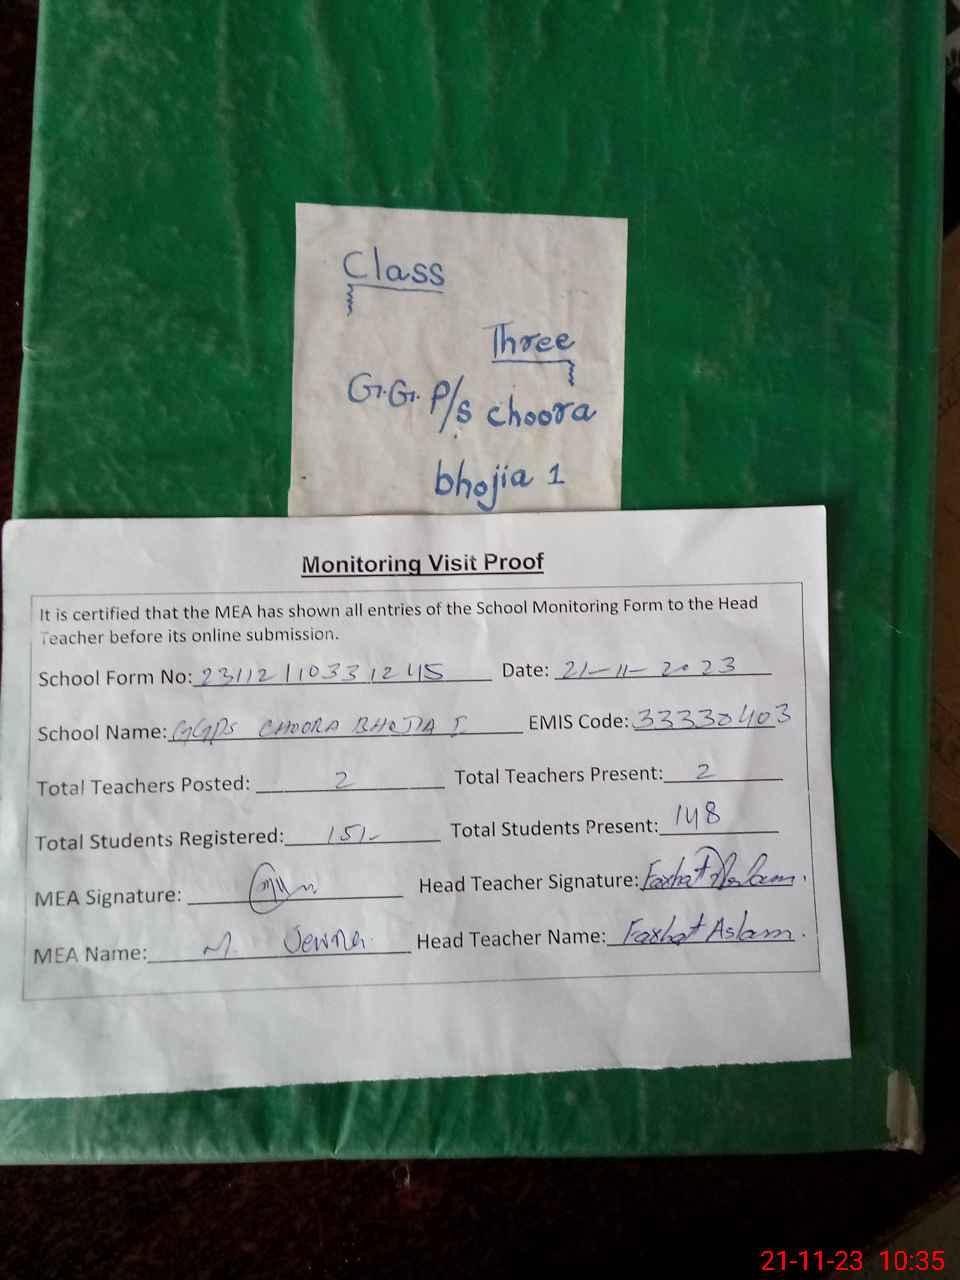 Class
Three
G.G. P/s choora
bhojia 1
Monitoring Visit Proof
It is certified that the MEA has shown all entries of the School Monitoring Form to the Head
Teacher before its online submission.
School Form No: Date: 21-11-2023
School Name: GGPS CHOORA BHOJIA I EMIS Code: 33330403
Total Teachers Posted: 2 Total Teachers Present: 2
Total Students Registered: 151 Total Students Present: 148
MEA Signature: Head Teacher Signature: Farhat Aslam.
MEA Name: M. Head Teacher Name: Farhat Aslam.
21-11-23 10:35